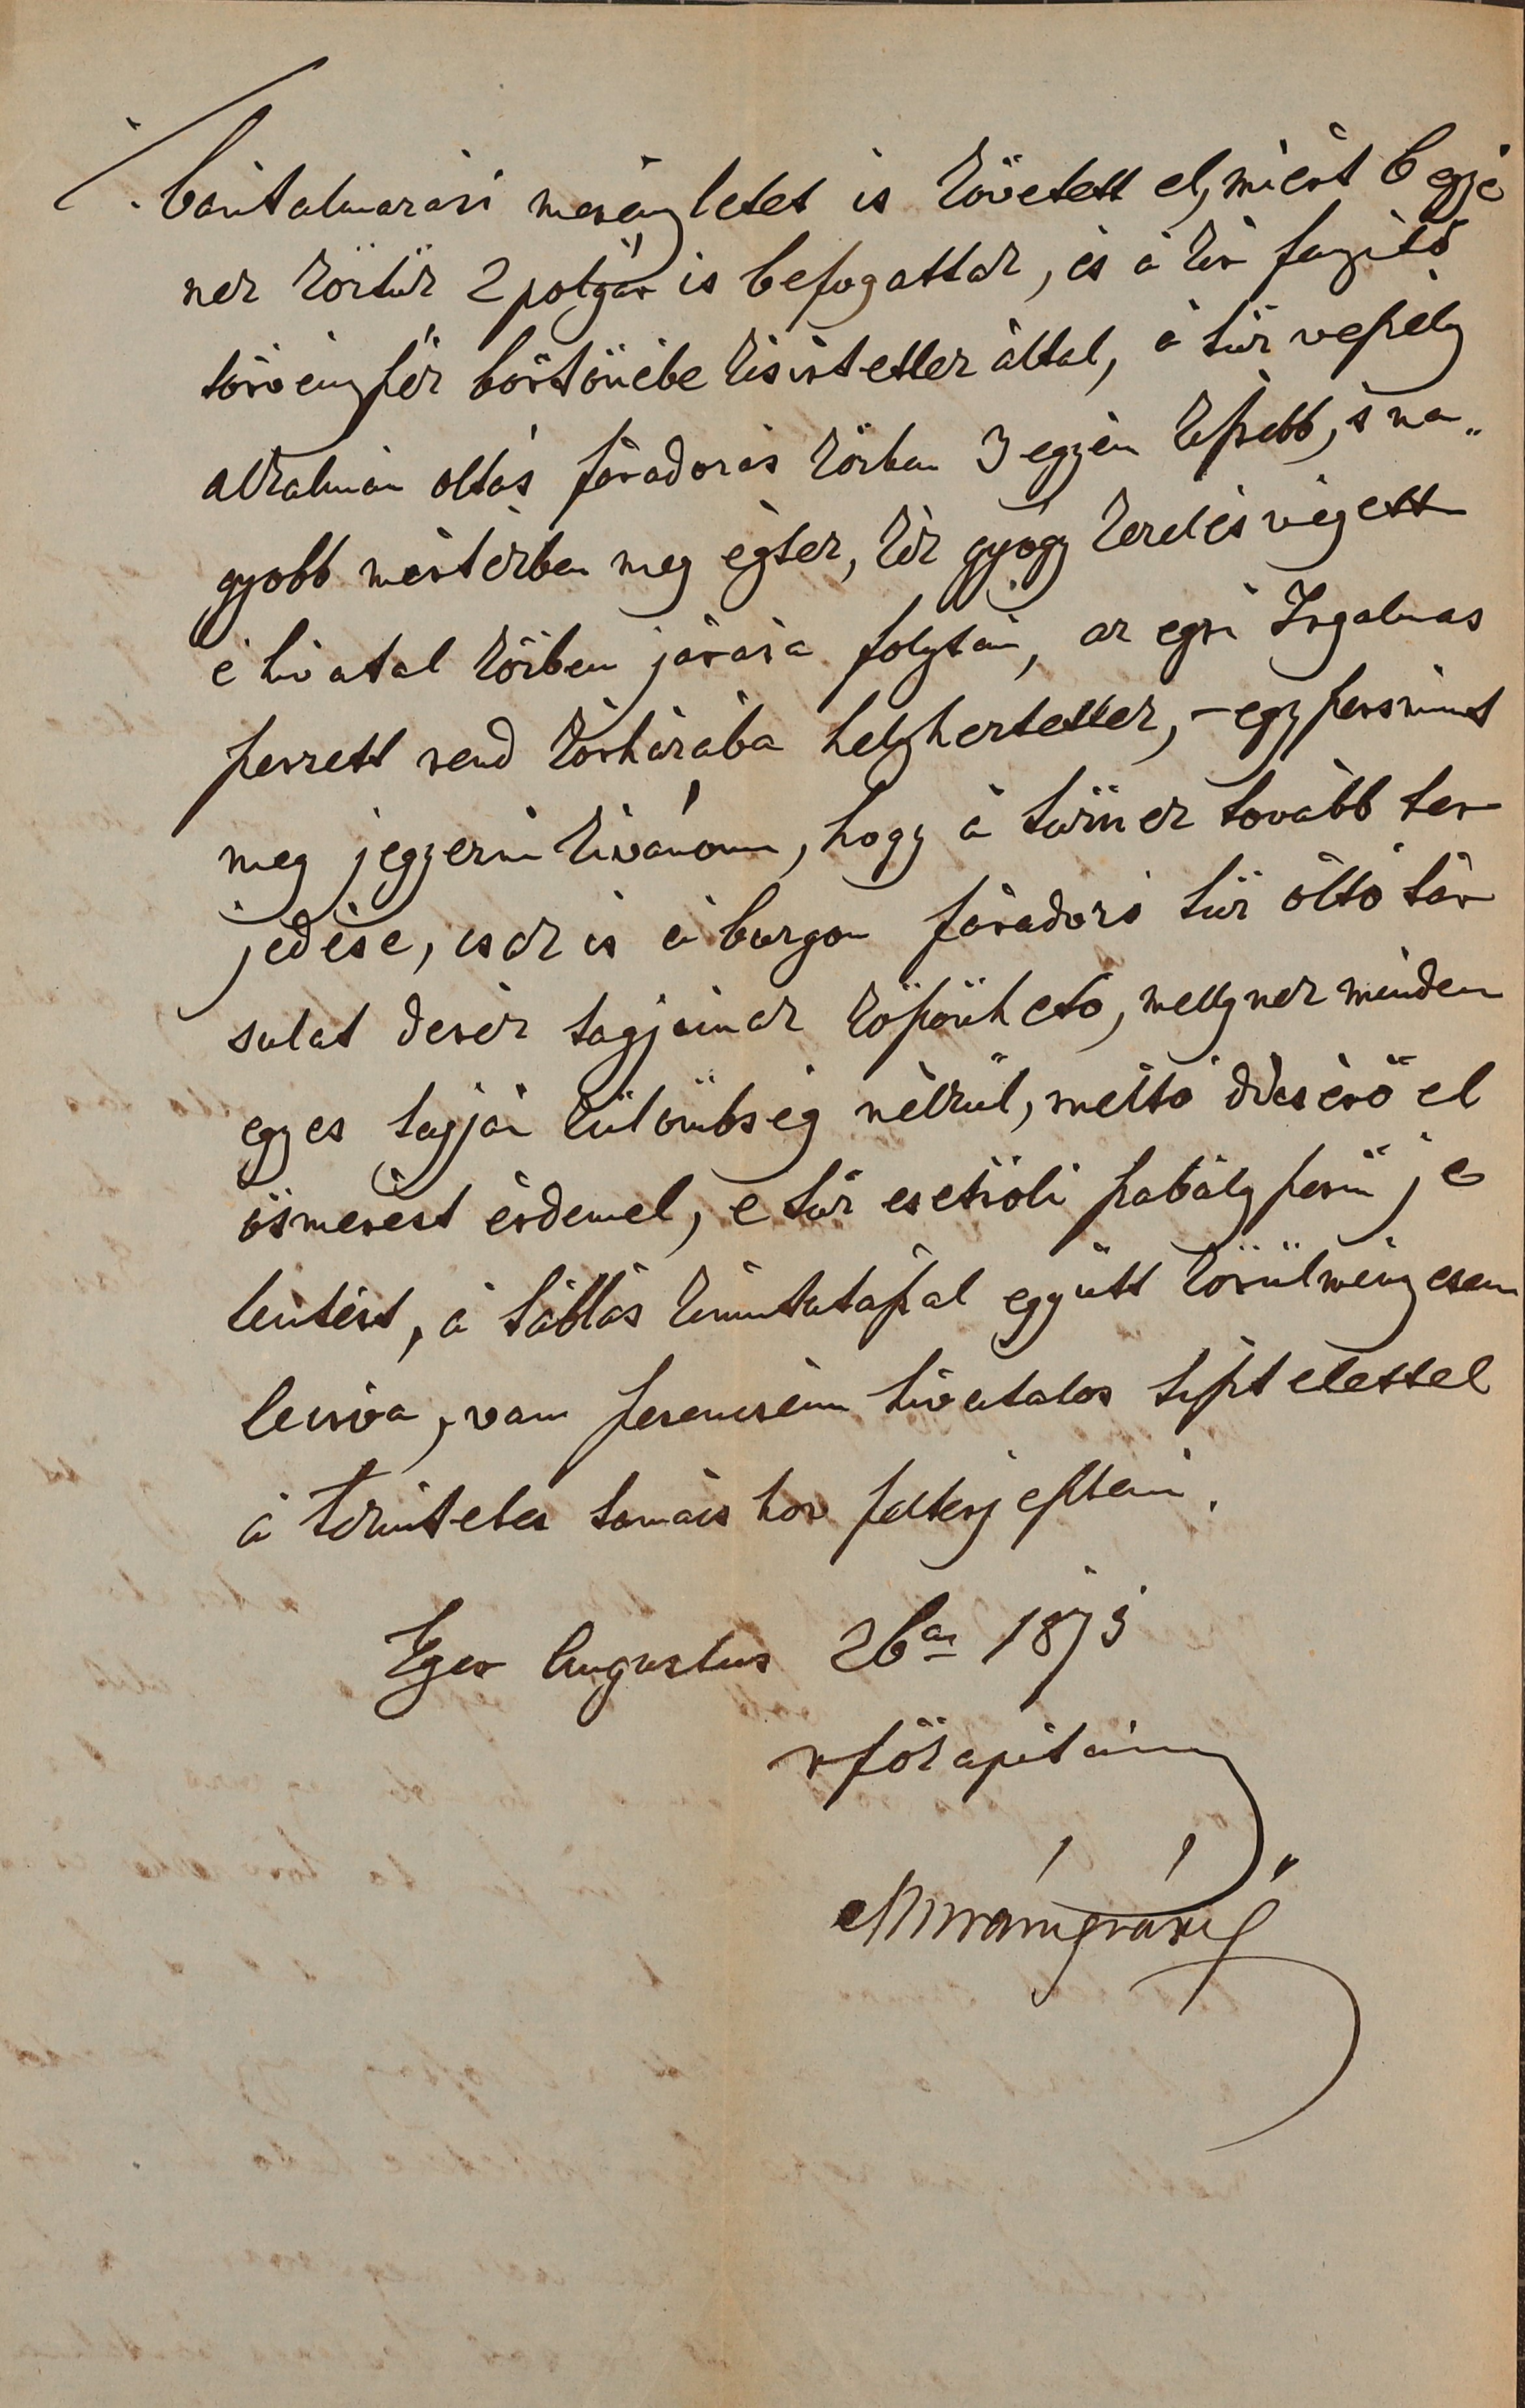 bántalmazási merényletet is követett el, miért 6 egyé
nek köztük 2 polgár is befogattak, és a kir fenyítő
törvényszék börtönébe kísértettek által, a tűz veszély
alkalmán oltás fáradozás közben 3 egyén kissebb, s na„
gyobb mértékben meg égtek, kik gyógy kezelés végett
e hivatal közben járása folytán, az egri Irgalmas
szerzett rend kórházába helyheztettek, – egyszersmint
meg jegyezni kívánom, hogy a tűznek tovább ter
jedése, csak is a buzgón fáradozó tűz oltó tár
sulat derék tagjainak köszönhető, mellynek minden
egyes tagja külömbség nélkül, méltó dicsérő el
ismerést érdemel, e tűz esetróli szabályszerű je
lentést, a táblás kimutatással együtt körülményesen
leírva, van szerencsém hivatalos tisztelettel
a Tekintetes tanácshoz felterjeszteni.
Eger Augustus 26án 1873
r főkapitány